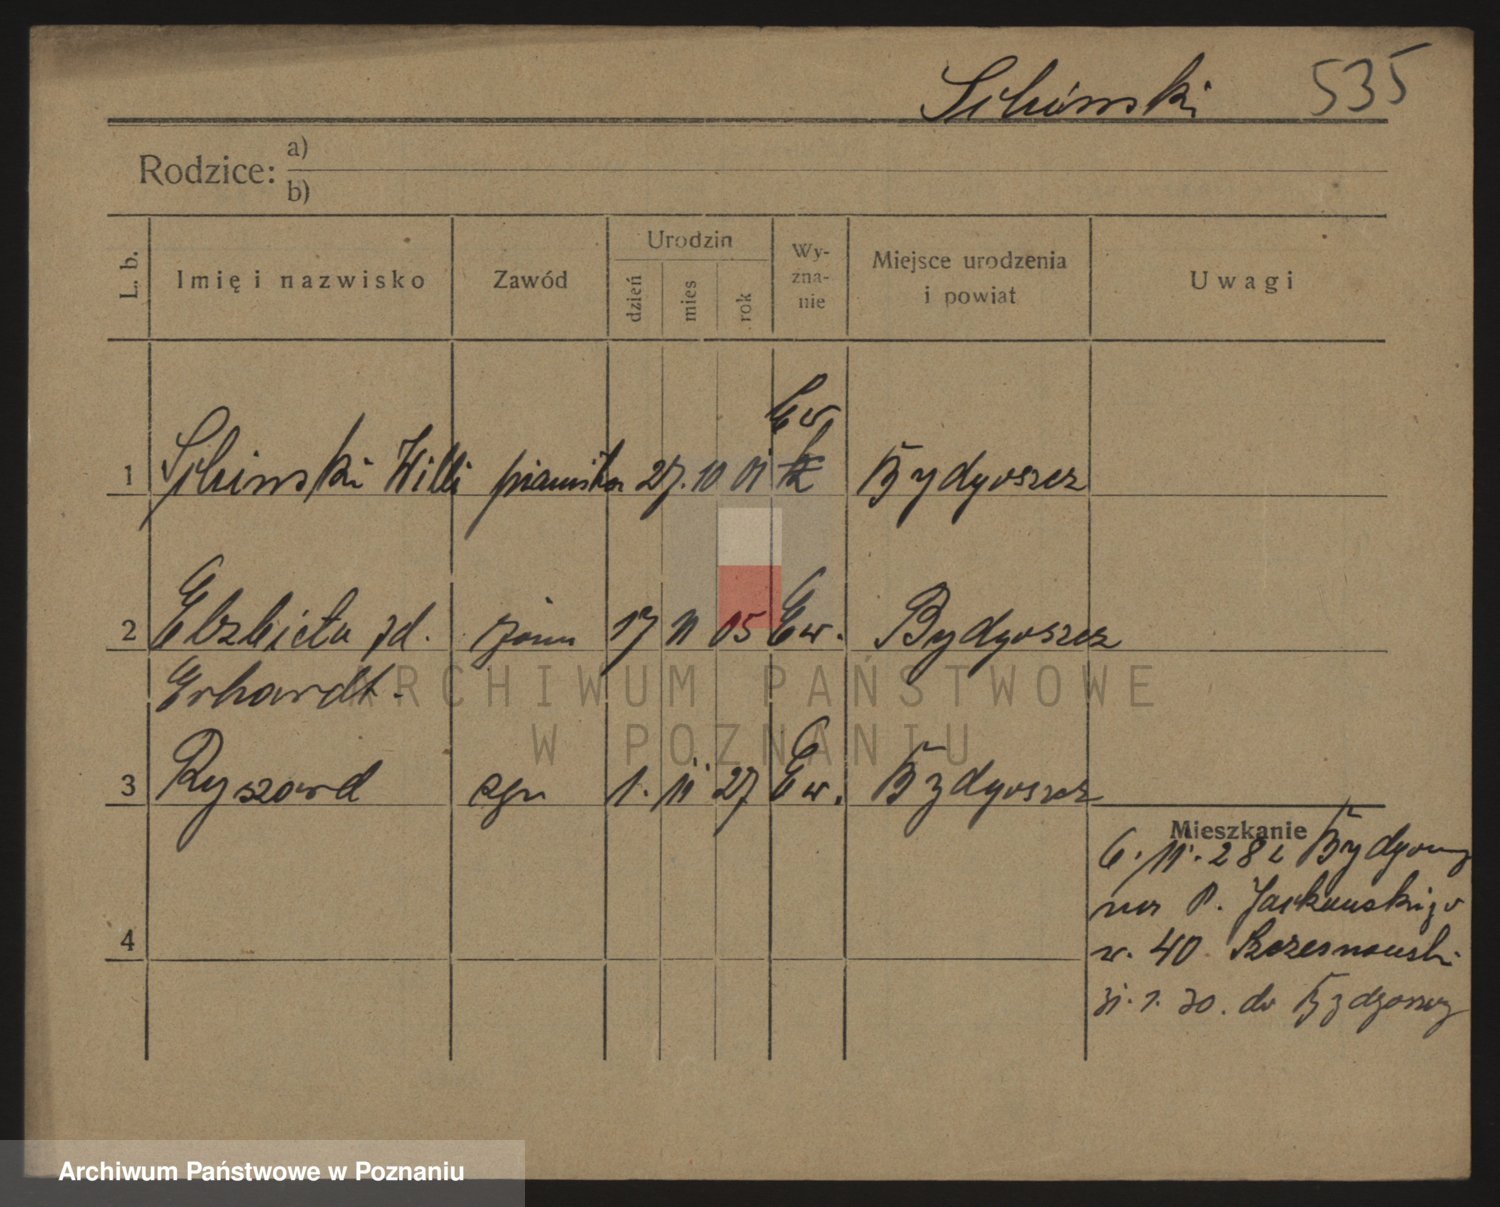 535
Rodzice: a)
b)
L. b. Imię i nazwisko Zawód Urodzin dzień mies rok Wy-zna-nie Miejsce urodzenia i powiat Uwagi
Ew
1 Willi pianista 27. 10 01 Bydgoszcz
2 Elzbieta zd. żona 17 11 05 Ew. Bydgoszcz
Erhardt.
3 Ryszard syn 1. 11 27 Ew. Bydgoszcz
Mieszkanie
6. 11. 28 z Bydgoszczy
na P. Jackowskiego
40
4
31. 1. 30. do Bydgoszczy
ARCHIWUM PAŃSTWOWE
W POZNANIU
Archiwum Państwowe w Poznaniu